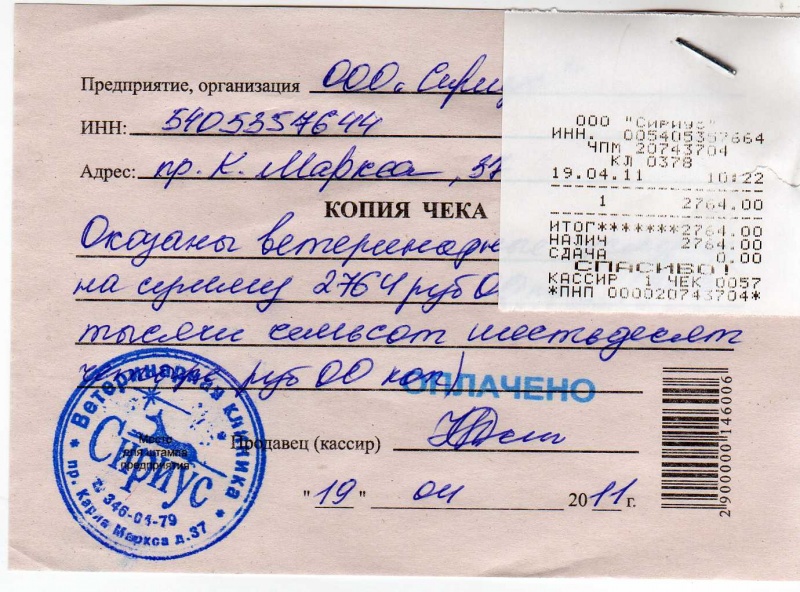 Предприятие, организация ООО. Сириус
ИНН: 5405357644
Адрес: пр. К. Маркса, 37
КОПИЯ ЧЕКА
Оказаны
на сумму 2764 руб
тысячи семьсот шестьдесят
четыре руб 00 коп)
ОПЛАЧЕНО
Продавец (кассир)
"19" 04 2011 г.
ООО "СИРИУС"
ИНН. 005405357664
ЧПМ 20743704
КЛ 0378
19.04.11 10:22
1 2764.00
ИТОГ*******2764.00
НАЛИЧ 2764.00
СДАЧА 0.00
СПАСИБО!
КАССИР 1 ЧЕК 0057
*ПНП 000020743704*
Ветеринарная клиника
Сириус
Место
для штампа
предприятия
346-04-79
пр. Карла Маркса д.37
2900000146006